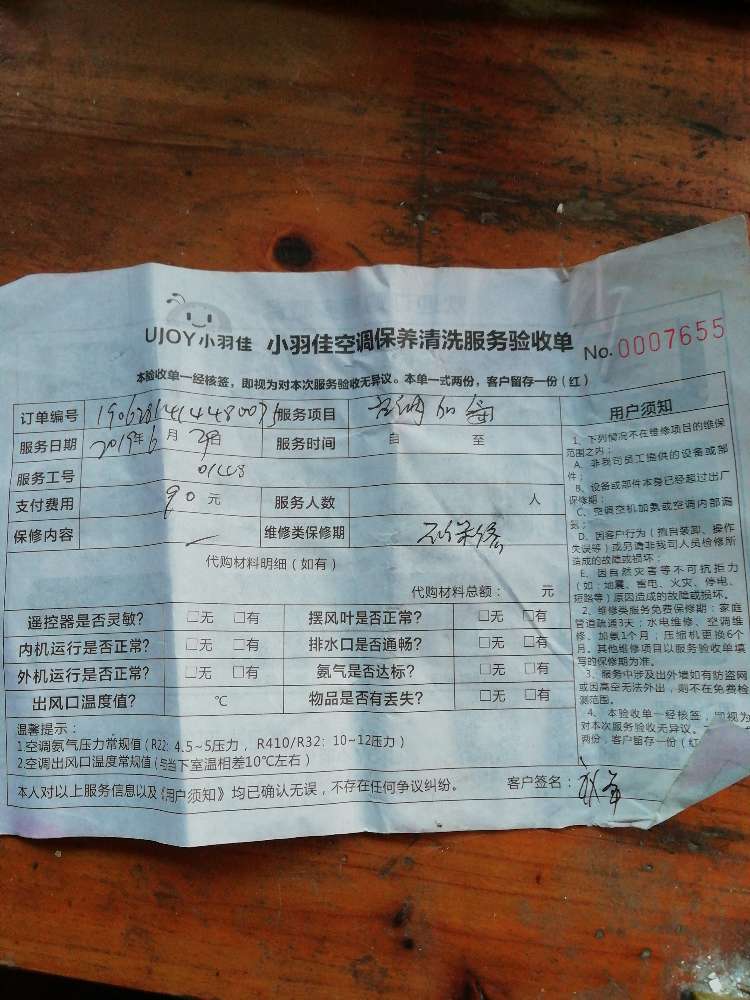 UJOY小羽佳 小羽佳空调保养清洗服务验收单 No.0007655
本验收单一经核签，即视为对本次服务验收无异议。本单一式两份，客户留存一份（红）
订单编号 服务项目 空调加氟
服务日期 2019年6月29日 服务时间 自 至
服务工号 01448
支付费用 90元 服务人数 人
保修内容 维修类保修期 不保修
代购材料明细（如有）
代购材料总额： 元
遥控器是否灵敏？ □无 □有 摆风叶是否正常？ □无 □有
内机运行是否正常？ □无 □有 排水口是否通畅？ □无 □有
外机运行是否正常？ □无 □有 氨气是否达标？ □无 □有
出风口温度值？ ℃ 物品是否有丢失？ □无 □有
温馨提示：
1.空调氨气压力常规值（R22：4.5~5压力，R410/R32：10~12压力）
2.空调出风口温度常规值（与当下室温相差10℃左右）
本人对以上服务信息以及《用户须知》均已确认无误，不存在任何争议纠纷。 客户签名：
用户须知
1、下列情况不在维修项目的维保
范围之内：
A、非我司员工提供的设备或部
件；
B、设备或部件本身已经超过出厂
保修期；
C、空调空机加氨或空调内部漏
氨；
D、因客户行为（擅自装卸、操作
失误等）或另请非我司人员检修所
造成的故障或损坏；
E、因自然灾害等不可抗拒力
（如：地震、雷电、火灾、停电、
短路等）原因造成的故障或损坏。
2、维修类服务免费保修期：家庭
管道疏通3天；水电维修、空调维
修、加氨1个月；压缩机更换6个
月。其他维修项目以服务验收单填
写的保修期为准。
3、服务中涉及出外墙如有防盗网
或因高空无法外出，则不在免费检
测范围。
4、本验收单一经核签，即视为
对本次服务验收无异议。
两份，客户留存一份（红